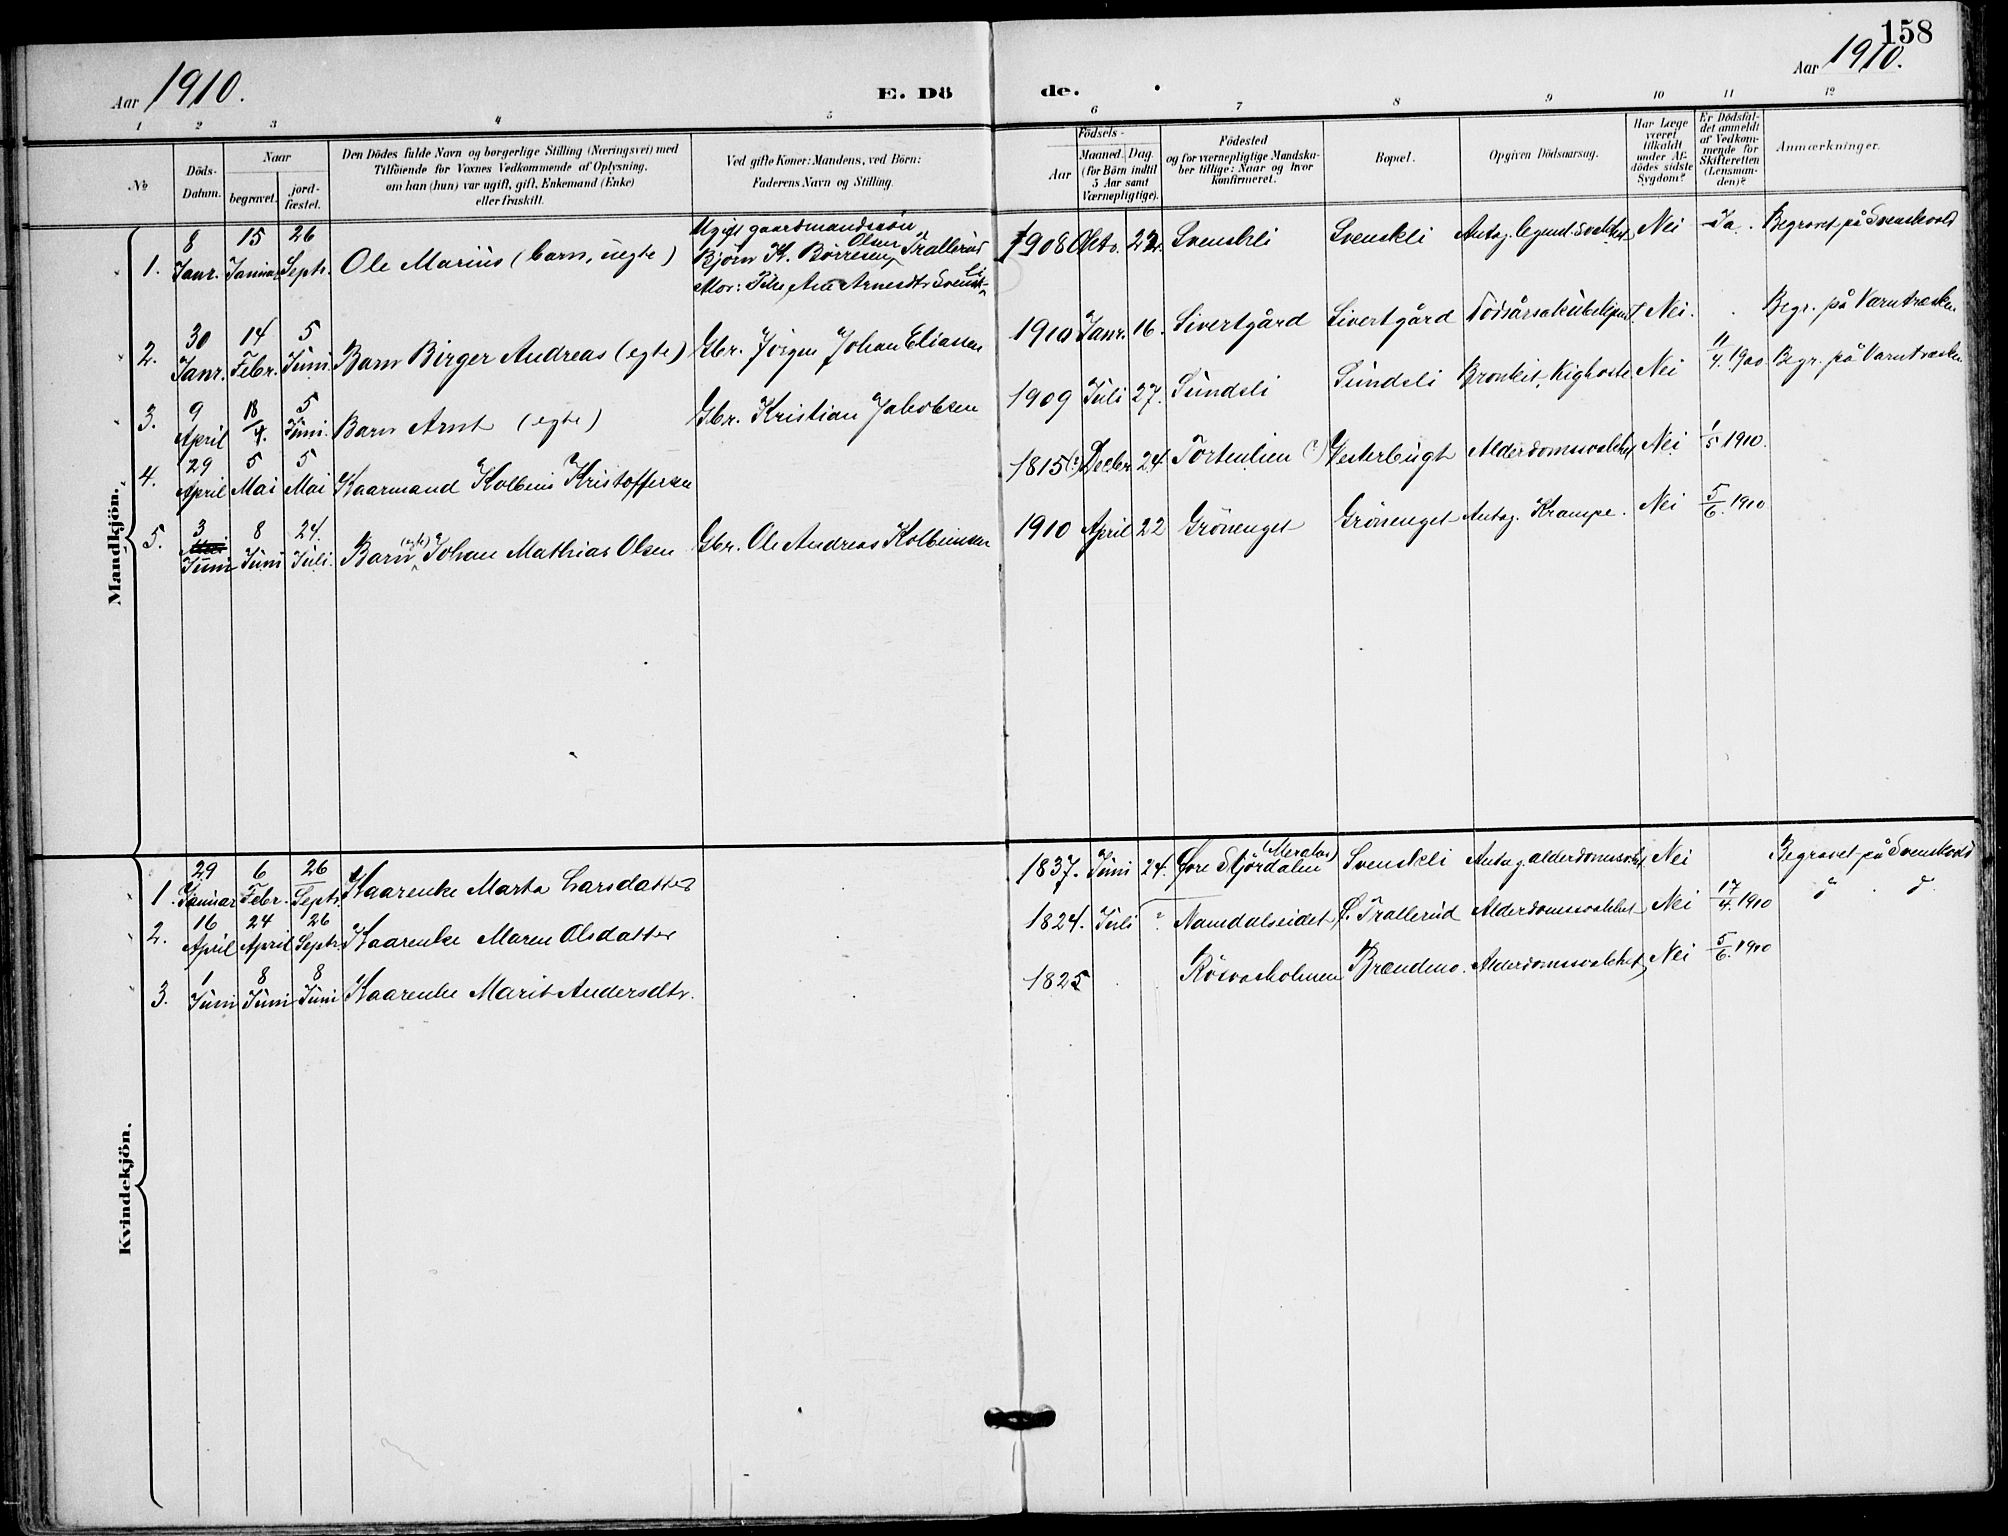 158
Aar 1910.
E. Dö
de.
Aar 1910.
1 2 3 4 5 6 7 8 9 10 11 12
No
Döds-Datum.
Naar
begravet.
jord-fæstet.
Den Dödes fulde Navn og borgerlige Stilling (Næringsvei) med
Tilföiende for Voxnes Vedkommende af Oplysning,
om han (hun) var ugift, gift, Enkemand (Enke)
eller fraskilt.
Ved gifte Koner: Mandens, ved Börn:
Faderens Navn og Stilling.
Födsels-
Aar
Maaned. Dag.
(for Börn indtil
5 Aar samt
Værnepligtige).
Födested
og for værnepligtige Mandska-
ber tillige: Naar og hvor
konfirmeret.
Bopæl.
Opgiven Dödsaarsag.
Har Læge
været
tilkaldt
under Af-
dödes sidste
Sygdom?
Er Dödsfal-
det anmeldt
af Vedkom-
mende for
Skifteretten
(Lensman-
den)?
Anmærkninger.
Mandkjön.
1. 8 Janr. 15 Januar 26 Septr. Ole Marius (barn, uegte) Ugift gaardmandssön Björn K. Börresen Olsen Trallerud Mor: Pike Ane Arnesdtr Svenskli 1908 Okto. 22. Svenskli Svenskli Antag. legeml. svakhet Nei Ja. Begravet på Svenskvold
2. 30 Janr. 14 Febr. 5 Juni Barn Birger Andreas (egte) Gbr. Jörgen Johan Eliassen 1910 Janr. 16. Sivertgård Sivertgård Dödsårsak ubekjent. Nei. Begr. på Varntræsken
3. 9 April 18/4. 5 Juni. Barn Arnt (egte) Gbr. Kristian Jakobsen 1909 Juli 27. Sundsli Sundsli Bronkit, Kighoste Nei 11/4. 1900 Begr. på Varntræsken
4. 29 April 5 Mai 5 Mai Kaarmand Kolbeins Kristoffersen 1815(?) Decbr. 24 Tortenlien (?) Vesterbugt Alderdomssvakhet Nei 1/5 1910.
5. 3 Juni 8 Juni 24. Juli. Barn (egte) Johan Mathias Olsen Gbr. Ole Andreas Kolbeinsen 1910 April 22 Grönenget Grönenget Antag. Krampe. Nei 5/6. 1910
Kvindekjön.
1. 29 Januar 6 Febr. 26 Septr. Kaarenke Marta Larsdatter 1837. Juni 24. Övre Stjördalen (Meraker) Svenskli Antag. alderdomssvakh. Nei Begravet på Svenskvold
2. 16 April 24 April 26 Septr. Kaarenke Maren Olsdatter 1824. Juli ? Namdalseidet Ö. Trallerud Alderdomssvakhet Nei 17/4. 1910 d d
3. 1 Juni 8 Juni 8 Juni Kaarenke Marit Andersdtr. 1825 Rösvasholmen Brændmo. Alderdomssvakhet Nei 5/6. 1910